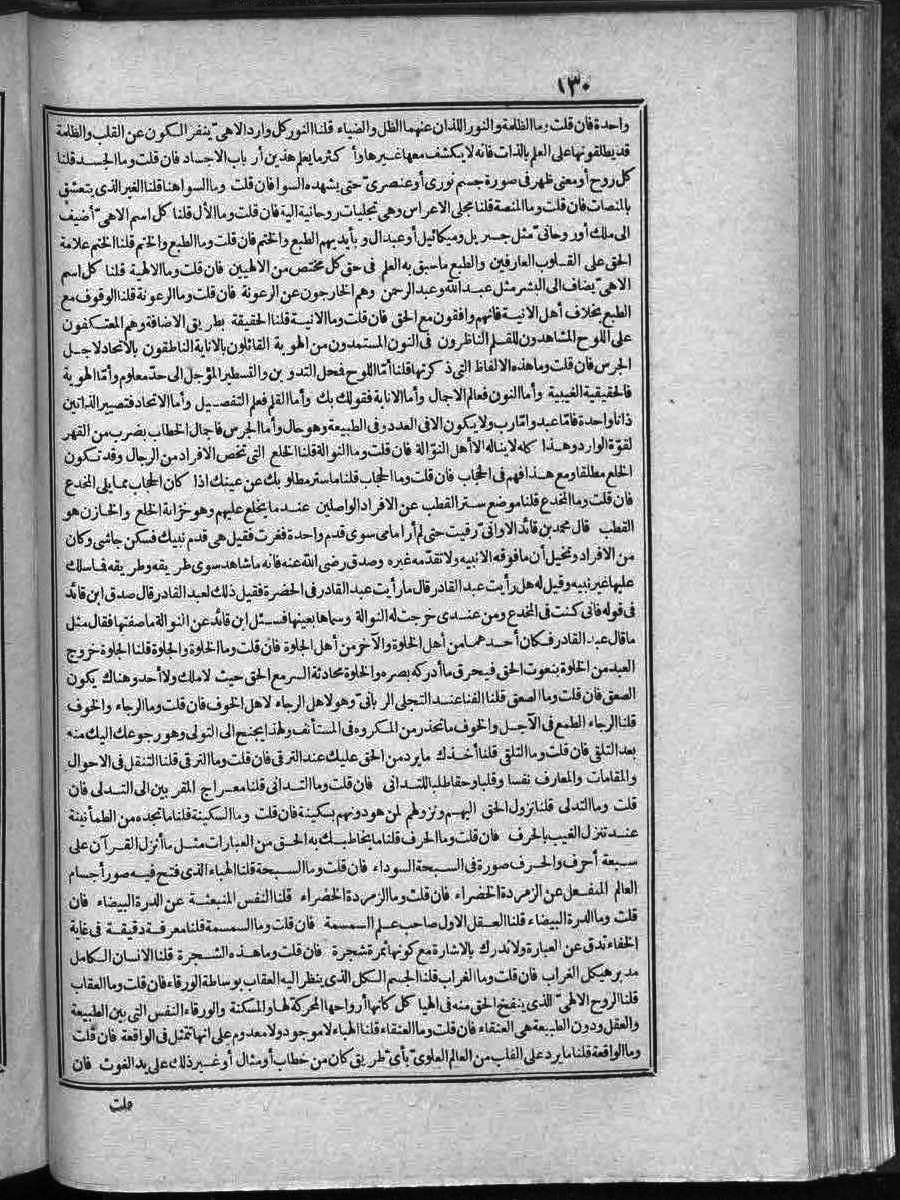 ١٣٠
واحدة فان قلت وما الظلمة والنور اللذان عنهما الظل والضياء قلنا النور كل وارد الاهى ينفر الكون عن القلب والظلمة
قد يطلقونها على العلم بالذات فانه لا يكشف معها غيرها وأكثر ما يعلم هذين أرباب الاجساد فان قلت وما الجسد قلنا
كل روح أو معنى ظهر فى صورة جسم نورى أو عنصرى حتى يشهده السوا فان قلت وما السوا هنا قلنا الغير الذى يتعشق
بالمنصات فان قلت وما المنصة قلنا مجلى الاعراس وهى تجليات روحانية الية فان قلت وما الأل قلنا كل اسم الاهى أضيف
الى ملك أو روحانى مثل جبريل وميكائيل أو عبدال وبأيديهم الطبع والختم فان قلت وما الطبع والختم قلنا الختم علامة
الحق على القلوب العارفين والطبع ما سبق به العلم فى حق كل مختص من الالهيين فان قلت وما الالهة قلنا كل اسم
الاهى يضاف الى البشر مثل عبد الله وعبد الرحمن وهم الخارجون عن الرعونة فان قلت وما الرعونة قلنا الوقوف مع
الطبع بخلاف أهل الانية فانهم واقفون مع الحق فان قلت وما الانية قلنا الحقيقة بطريق الاضافة وهم المعتكفون
على اللوح المشاهدون للقلم الناظرون فى النون المستمدون من الهوية القائلون بالاناية الناطقون بالاتحاد لاجل
الجرس فان قلت وما هذه الالفاظ التى ذكرتها قلنا أما اللوح فمحل التدوين والتسطير المؤجل الى حد معلوم وأما الهوية
فالحقيقية الغيبية وأما النون فعالم الاجال وأما الاناية فقولك بك وأما القلم فعلم التفصيل وأما الاتحاد فتصيير الذاتين
ذاتا واحدة فاما عبد واما رب ولا يكون الا فى العدد وفى الطبيعة وهو حال وأما الجرس فاجال الخطاب بضرب من القهر
لقوة الوارد وهذا كله لا يناله الا أهل النوالة فان قلت وما النوالة قلنا الخلع التى تخص الافراد من الرجال وقد تكون
الخلع مطلقا ومع هذا فهم فى الحجاب فان قلت وما الحجاب قلنا ما ستر مطلوبك عن عينك اذا كان الحجاب مما يلى المخدع
فان قلت وما المخدع قلنا موضع ستر القطب عن الافراد الواصلين عندما يخلع عليهم وهو خزانة الخلع والخازن هو
القطب قال محمد بن قائد الاوانى رقيت حتى لم أر امامى سوى قدم واحدة فغرت فقيل هى قدم نبيك فسكن جاشى وكان
من الافراد وتخيل أن ما فوقه الا نبيه ولا تقدمه غيره وصدق رضى الله عنه فانه ما شاهد سوى طريقه وطريقه فما سلك
عليها غير نبيه وقيل له هل رأيت عبد القادر قال ما رأيت عبد القادر فى الحضرة فقيل ذلك لعبد القادر قال صدق ابن قائد
فى قوله فانى كنت فى المخدع ومن عندى خرجت له النوالة وسماها بعينها فسئل ابن قائد عن النوالة ما صفتها فقال مثل
ما قال عبد القادر فكان أحدهما من أهل الخلوة والآخر من أهل الجلوة فان قلت وما الخلوة والجلوة قلنا الجلوة خروج
العبد من الخلوة بنعوت الحق فيحرق ما أدركه بصره والخلوة محادثة السر مع الحق حيث لا ملك ولا أحد وهناك يكون
الصعق فان قلت وما الصعق قلنا الفنا عند التجلى الربانى وهو لاهل الرجاء لا هل الخوف فان قلت وما الرجاء والخوف
قلنا الرجاء الطمع فى الآجل والخوف ما تحذر من المكروه فى المستأنف ولهذا يجنح الى التولى وهو رجوعك اليك منه
بعد التلقى فان قلت وما التلقى قلنا أخذك ما يرد من الحق عليك عند الترقى فان قلت وما الترقى قلنا التنقل فى الاحوال
والمقامات والمعارف نفسا وقلبا وحقا طلبا للتدانى فان قلت وما التدانى قلنا معراج المقربين الى التدلى فان
قلت وما التدلى قلنا نزول الحق اليهم ونزولهم لمن هو دونهم بسكينة فان قلت وما السكينة قلنا ما تجده من الطمأنينة
عند تنزل الغيب بالحرف فان قلت وما الحرف قلنا ما يخاطبك به الحق من العبارات مثل ما أنزل القرآن على
سبعة أحرف والحرف صورة فى السبحة السوداء فان قلت وما السبحة قلنا الهباء الذى فتح فيه صور أجسام
العالم المنفعل عن الزمردة الخضراء فان قلت وما الزمردة الخضراء قلنا النفس المنبعثة عن الدرة البيضاء فان
قلت وما الدرة البيضاء قلنا العقل الاول صاحب علم السمسمة فان قلت وما السمسمة قلنا معرفة دقيقة فى غاية
الخفاء تدق عن العبارة ولا تدرك بالاشارة مع كونها ثمرة شجرة فان قلت وما هذه الشجرة قلنا الانسان الكامل
مدبر هيكل الغراب فان قلت وما الغراب قلنا الجسم الكل الذى ينظر اليه العقاب بوساطة الورقاء فان قلت وما العقاب
قلنا الروح الالهى الذى ينفخ الحق منه فى الهيا كل كانها أرواحها المحركة لها والمسكنة والورقاء النفس التى بين الطبيعة
والعقل ودون الطبيعة هى العنقاء فان قلت وما العنقاء قلنا الهباء لا موجود ولا معدوم على انها تمثل فى الواقعة فان قلت
وما الواقعة قلنا ما يرد على القلب من العالم العلوى بأى طريق كان من خطاب أو مثال أو غير ذلك على يد الغوث فان
قلت